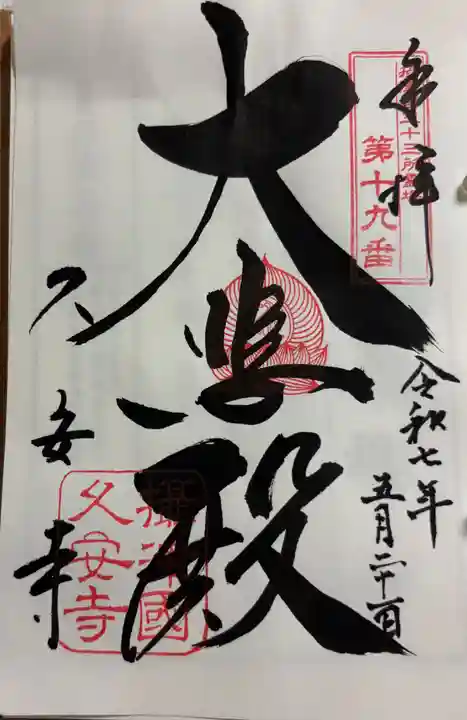 奉拝
第十九番
令和七年
五月二十一日
大悲殿
久安寺
攝津國
久安寺